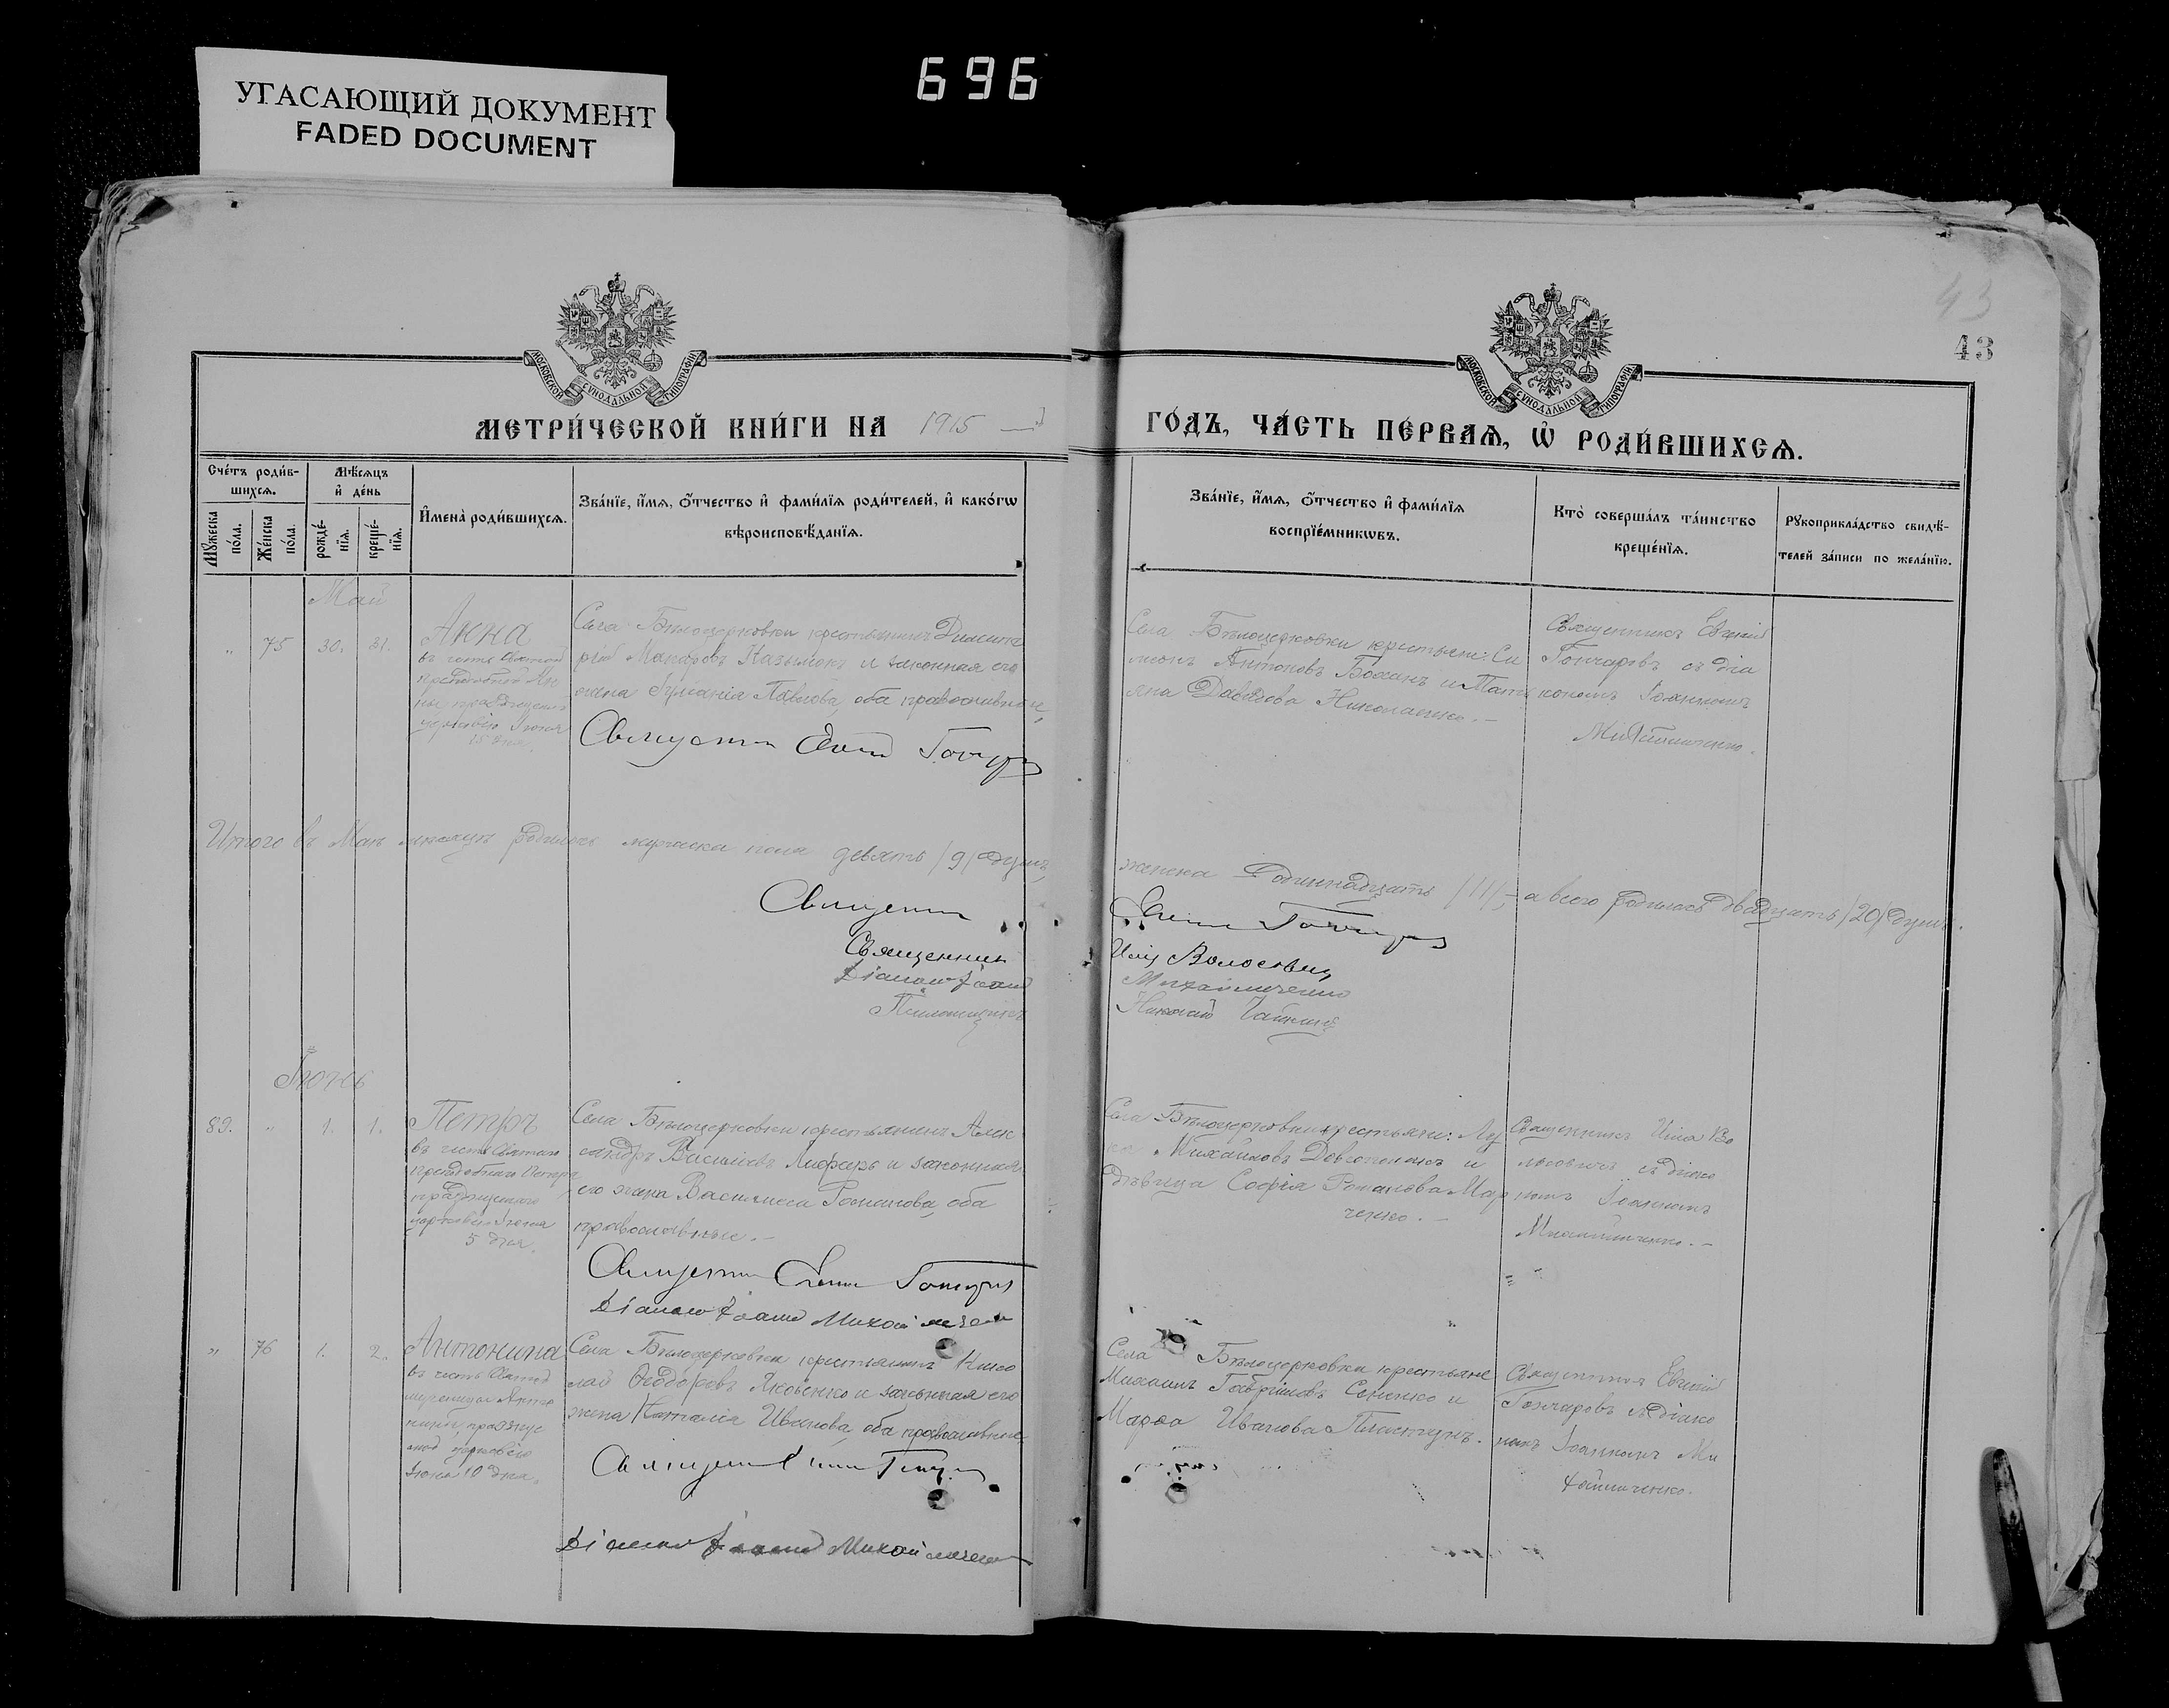 696
УГАСАЮЩИЙ ДОКУМЕНТ
FADED DOCUMENT
43
43
МОСКОВСКОЙ СУНОДАЛЬНОЙ ТИПОГРАФІИ
МОСКОВСКОЙ СУНОДАЛЬНОЙ ТИПОГРАФІИ
МЕТРИ́ЧЕСКОЙ КНИ́ГИ НА 1915 ГО́ДЪ, ЧА́СТЬ ПЕ́РВАѦ, Ѡ҆ РОДИ́ВШИХСѦ.
Сче́тъ роди́в-
шихсѧ.
Мꙋ́жеска
по́ла.
Же́нска
по́ла.
Мѣ́сѧцъ
и҆ де́нь
рожде́-
нїѧ.
креще́-
нїѧ.
И҆мена̀ роди́вшихсѧ.
Зва́нїе, и҆́мѧ, ѻ҆́тчество и҆ фами́лїѧ роди́телей, и҆ како́гѡ
вѣроисповѣ́данїѧ.
Зва́нїе, и҆́мѧ, ѻ҆́тчество и҆ фами́лїѧ
воспрїе́мникѡвъ.
Кто̀ соверша́лъ та́инство
креще́нїѧ.
Рꙋкоприкла́дство свидѣ́-
телей за́писи по жела́нїю.
Май
" 75 30. 31.
Анна
въ честь Святой
Преподобной Ан
ны празднуемой
церковію Іюня
Села Бѣлоцерковки крестьянинъ Димит
рій Макаровъ Казымокъ и законная его
жена Іуліанія Павлова, оба православные,
Священник Гончаров
Села Бѣлоцерковки крестьяне: Си
меонъ Антоновъ Боханъ и Тать
яна Давидова Николаенко.–
Священникъ Евгеній
Гончаровъ съ діа
кономъ Іоанномъ
Михайличенко.
Итого въ Маѣ мѣсяцѣ родилось мужеска пола девять /9/ душъ,
женска одиннадцать /11/,– а всего родилось двадцать /20/ душъ.
Священник Гончаров
Священник Илія Волосович
Діакон Іоанн Михайличенко
Николай
Іюнь
89. " 1. 1.
Петръ
въ честь Святаго
Преподобнаго Петра
празднуемаго
церковію Іюня
5 дня.
Села Бѣлоцерковки крестьянинъ Алек
сандръ Василіевъ и законная
его жена Василисса Романова, оба
православные.–
Священник Гончаров
Діакон Іоанн Михайличенко
Села Бѣлоцерковки крестьяне: Лу
ка Михайловъ и
дѣвица Софія Романова Мар
ченко.–
Священникъ Илія Во
лосовичъ съ діако
номъ Іоанномъ
Михайличенко.–
" 76 1. 2.
Антонина
въ честь Святой
мученицы Анто
нины, празднуе
мой церковію
Іюня 10 дня.
Села Бѣлоцерковки крестьянинъ Нико
лай Ѳеодоровъ Яковенко и законная его
жена Наталія Иванова, оба православные
Священник Гончаров
Діакон Іоанн Михайличенко
Села Бѣлоцерковки крестьяне
Михаилъ Гавріиловъ Сененко и
Марѳа Иванова Пластунъ.
Священникъ Евгеній
Гончаровъ съ діако
номъ Іоанномъ Ми
хайличенко.